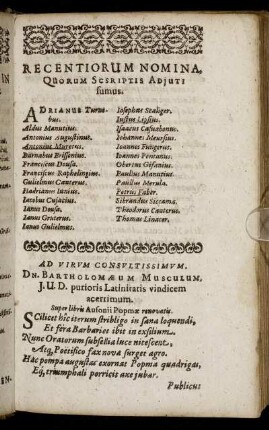 RECENTIORUM NOMINA,
QUORUM SCRIPTIS ADJUTI
sumus.
ADRIANUS Turne-
bus.
Aldus Manutius.
Antonius Augustinus.
Antonius Muretus.
Barnabas Brissonius.
Franciscus Dousa.
Franciscus Raphelingius.
Gulielmus Canterus.
Hadrianus Iunius.
Iacobus Cujacius.
Ianus Dousa.
Ianus Gruterus.
Ianus Gulielmus.
Iosephus Scaliger.
Iustus Lipsius.
Isaacus Casaubonus.
Iohannes Meursius.
Ioannes Fungerus.
Ioannes Pontanus.
Obertus Gifanius.
Paullus Manutius.
Paullus Merula.
Petrus Faber.
Sibrandus Siccama.
Theodorus Canterus.
Thomas Linacer.
AD VIRUM CONSULTISSIMUM,
DN. BARTHOLOMÆUM MUSCULUM,
J. U. D. purioris Latinitatis vindicem
acerrimum.
Super libris Ausonii Popmæ renovatis.
SCilicet hîc iterum stribligo in sana loquendi,
Et fera Barbaries ibit in exsilium.
Nunc Oratorum subsellia luce nitescent,
Atq; Poëtifico fax nova surget agro.
Hac pompa augustas exornat Popma quadrigas,
Eq; triumphali porricis axe jubar.
Publicus